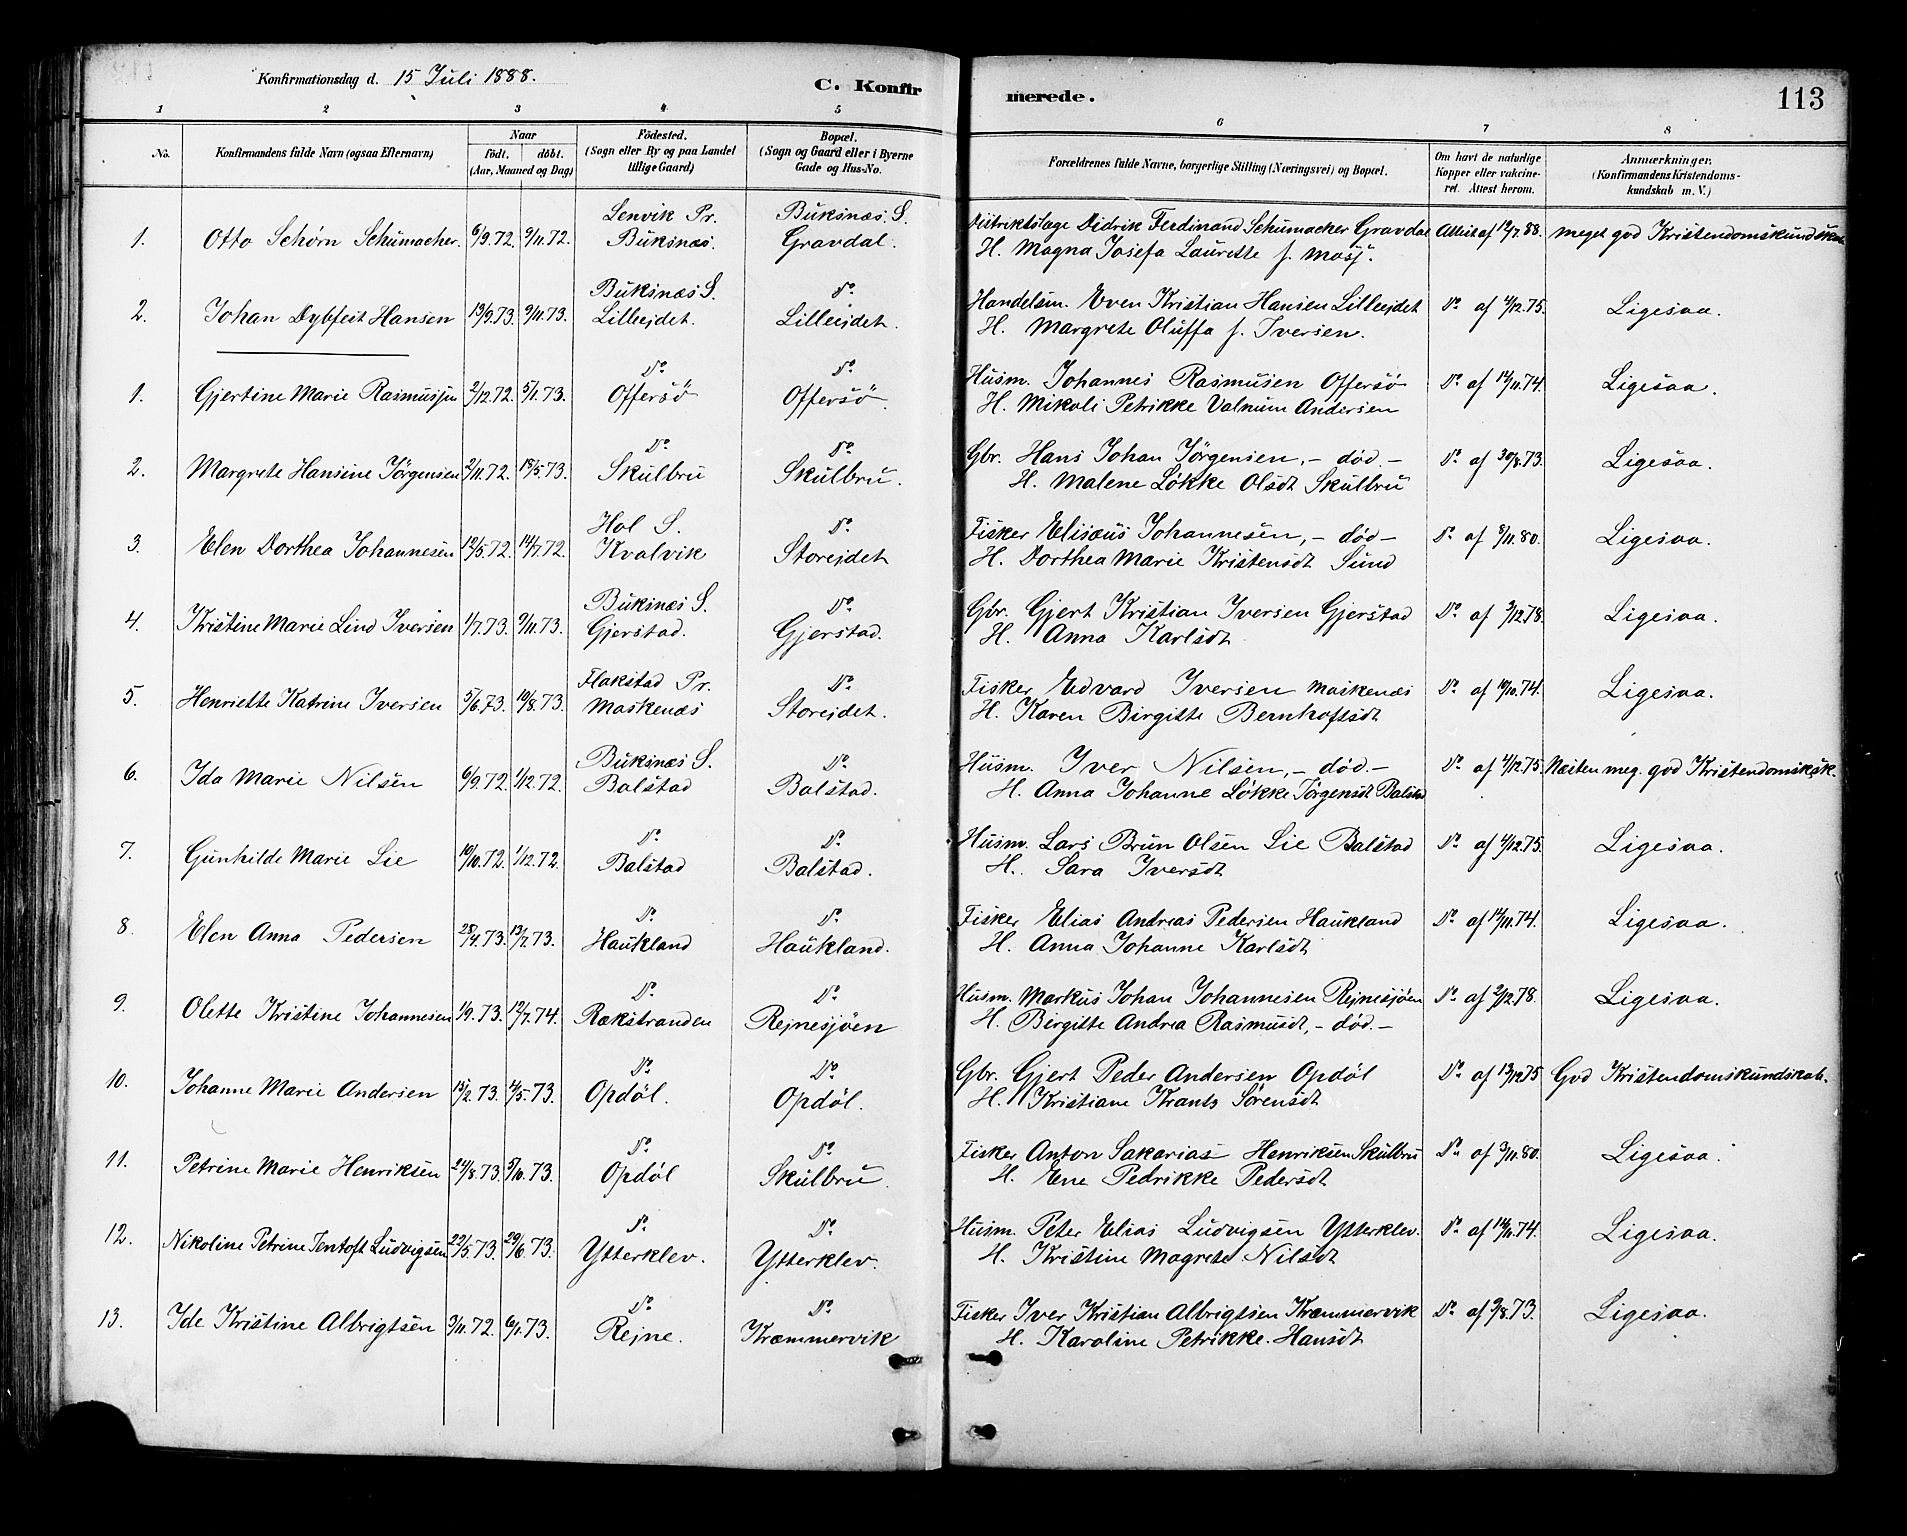 Konfirmationsdag d. 15 Juli 1888.
C. Konfirmerede.
113
1 2 3 4 5 6 7 8
No. Konfirmandens fulde Navn (ogsaa Efternavn) Naar født. døbt. (Aar, Maaned og Dag) Fødested. (Sogn eller By og paa Landet tillige Gaard) Bopæl. (Sogn og Gaard eller i Byerne Gade og Hus-No. Forældrenes fulde Navne, borgerlige Stilling (Næringsvei) og Bopæl. Om havt de naturlige Kopper eller vakcineret. Attest herom. Anmærkninger. (Konfirmandens Kristendomskundskab m. V.)
1. Otto Schørn Schumacher. 6/9.72. 9/11.72. Lenvik Pr. Buksnæs. Buksnæs. S. Gravdal. Distriktslæge Didrik Ferdinand Schumacker Gravdal Attest af 12/7.88. meget god Kristendomskundskab
H. Magna Josefa Laurette f. Mosj.
2. Johan Dybfest Hansen 19/9.73. 9/11.73. Buksnæs S. Lilleejdet. Do Lilleejdet. Handelsm. Even Kristian Hansen Lilleejdet Do af 4/12.75. Ligesaa.
H. Margrete Oluffa f. Iversen.
1. Gjertine Marie Rasmussen 2/12.72. 5/1.73. Do Offersö Do Offersö. Husm. Johannes Rasmusen Offersö Do af 14/11.74. Ligesaa.
H. Mikoli Petrikke Valnum Andersen
2. Margrete Hansine Jörgensen 2/11.72. 18/5.73. Do Skulbru Do Skulbru. Gbr. Hans Johan Jörgensen, - död. - Do af 30/8.73. Ligesaa.
H. Malene Løkke Olsdt Skulbru
3. Elen Dorthea Johannesen 12/5.72. 14/7.72. Hol S. Kvalvik Do Storejdet Fisker Elisæus Johannesen, - død - Do af 8/11.80. Ligesaa.
H. Dorthea Marie Kristensdt Sund
4. Kristine Marie Lind Iversen 1/7.73. 9/11.73. Buksnæs S. Gjerstad. Do Gjerstad. Gbr. Gjert Kristian Iversen Gjerstad Do af 3/12.78. Ligesaa.
H. Anna Karlsdt
5. Henriette Katrine Iversen 5/6.73. 10/8.73. Flakstad Pr. Moskenæs Do Storejdet. Fisker Edvard Iversen Moskenæs Do af 10/10.74. Ligesaa.
H. Karen Birgitte Bernhoftsdt
6. Ida Marie Nilsen 6/9.72. 1/12.72. Buksnæs S. Balstad Do Balstad. Husm. Iver Nilsen, - død. - Do af 4/12.75. Næsten meg. god Kristendomsksk.
H. Anna Johanne Løkke Jörgensdt Balstad
7. Gunhilde Marie Lie 10/10.72. 1/12.72. Do Balstad Do Balstad. Husm. Lars Brun Olsen Lie Balstad Do af 4/12.75. Ligesaa.
H. Sara Iversdt
8. Elen Anna Pedersen 28/4.73. 13/7.73. Do Haukland Do Haukland. Fisker Elias Andreas Pedersen Haukland Do af 14/11.74. Ligesaa.
H. Anna Johanne Karlsdt
9. Olette Kristine Johannesen 1/9.73. 12/7.74. Do Rækstranden Do Rejnesjøen Husm. Markus Johan Johannesen Rejnesjøen Do af 2/12.78. Ligesaa.
H. Birgitte Andrea Rasmusdt, - død. -
10. Johanne Marie Andersen 15/2.73. 4/5.73. Do Opdøl. Do Opdøl. Gbr. Gjert Peder Andersen Opdøl Do af 13/12.75 God Kristendomskundskab.
H. Kristiane Krants Sørensdt
11. Petrine Marie Henriksen 24/8.73. 5/10.73. Do Opdøl Do Skulbru. Fisker Anton Sakarias Henriksen Skulbru Do af 3/11.80. Ligesaa.
H. Ene Pedrikke Pedersdt
12. Nikoline Petrine Tentoft Ludvigsen 22/5.73. 29/6.73. Do Ytterklev. Do Ytterklev. Husm. Peter Elias Ludvigsen Ytterklev. Do af 14/11.74. Ligesaa.
H. Kristine Magrete Nilsdt
13. Ide Kristine Albrigtsen 3/11.72. 6/1.73. Do Rejne. Do Kræmmervik Fisker Iver Kristian Albrigtsen Kræmmervik Do af 9/8.73. Ligesaa.
H. Karoline Petrikke Hansdt